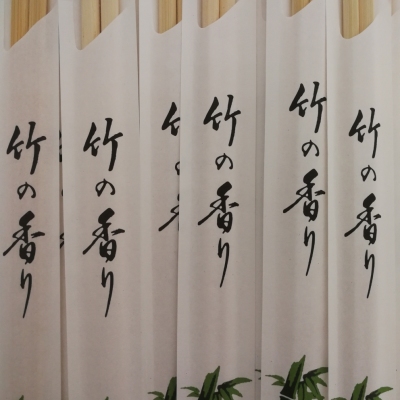 竹の香り
竹の香り
竹の香り
竹の香り
竹の香り